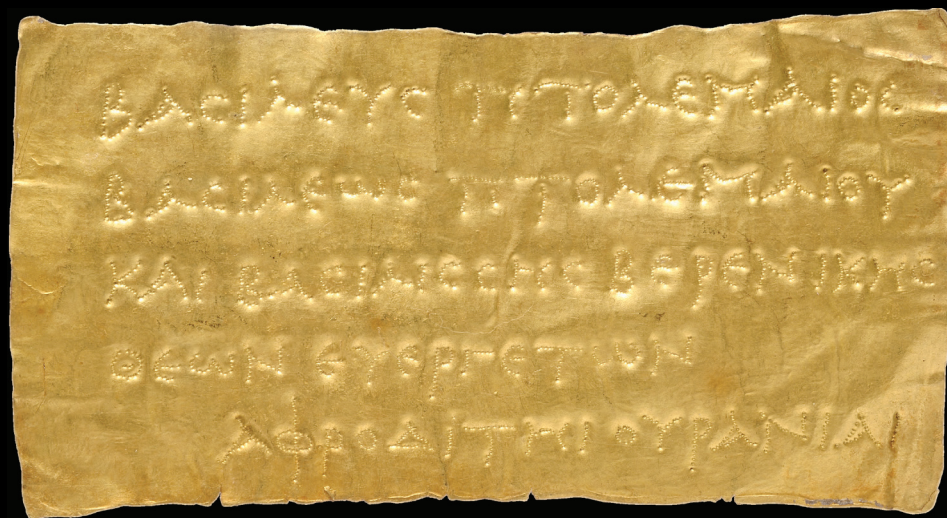 ΒΑϹΙΛΕΥϹ ΠΤΟΛΕΜΑΙΟϹ
ΒΑϹΙΛΕΩϹ ΠΤΟΛΕΜΑΙΟΥ
ΚΑΙ ΒΑϹΙΛΙϹϹΗϹ ΒΕΡΕΝΙΚΗϹ
ΘΕΩΝ ΕΥΕΡΓΕΤΩΝ
ΑΦΡΟΔΙΤΗΙ ΟΥΡΑΝΙΑΙ